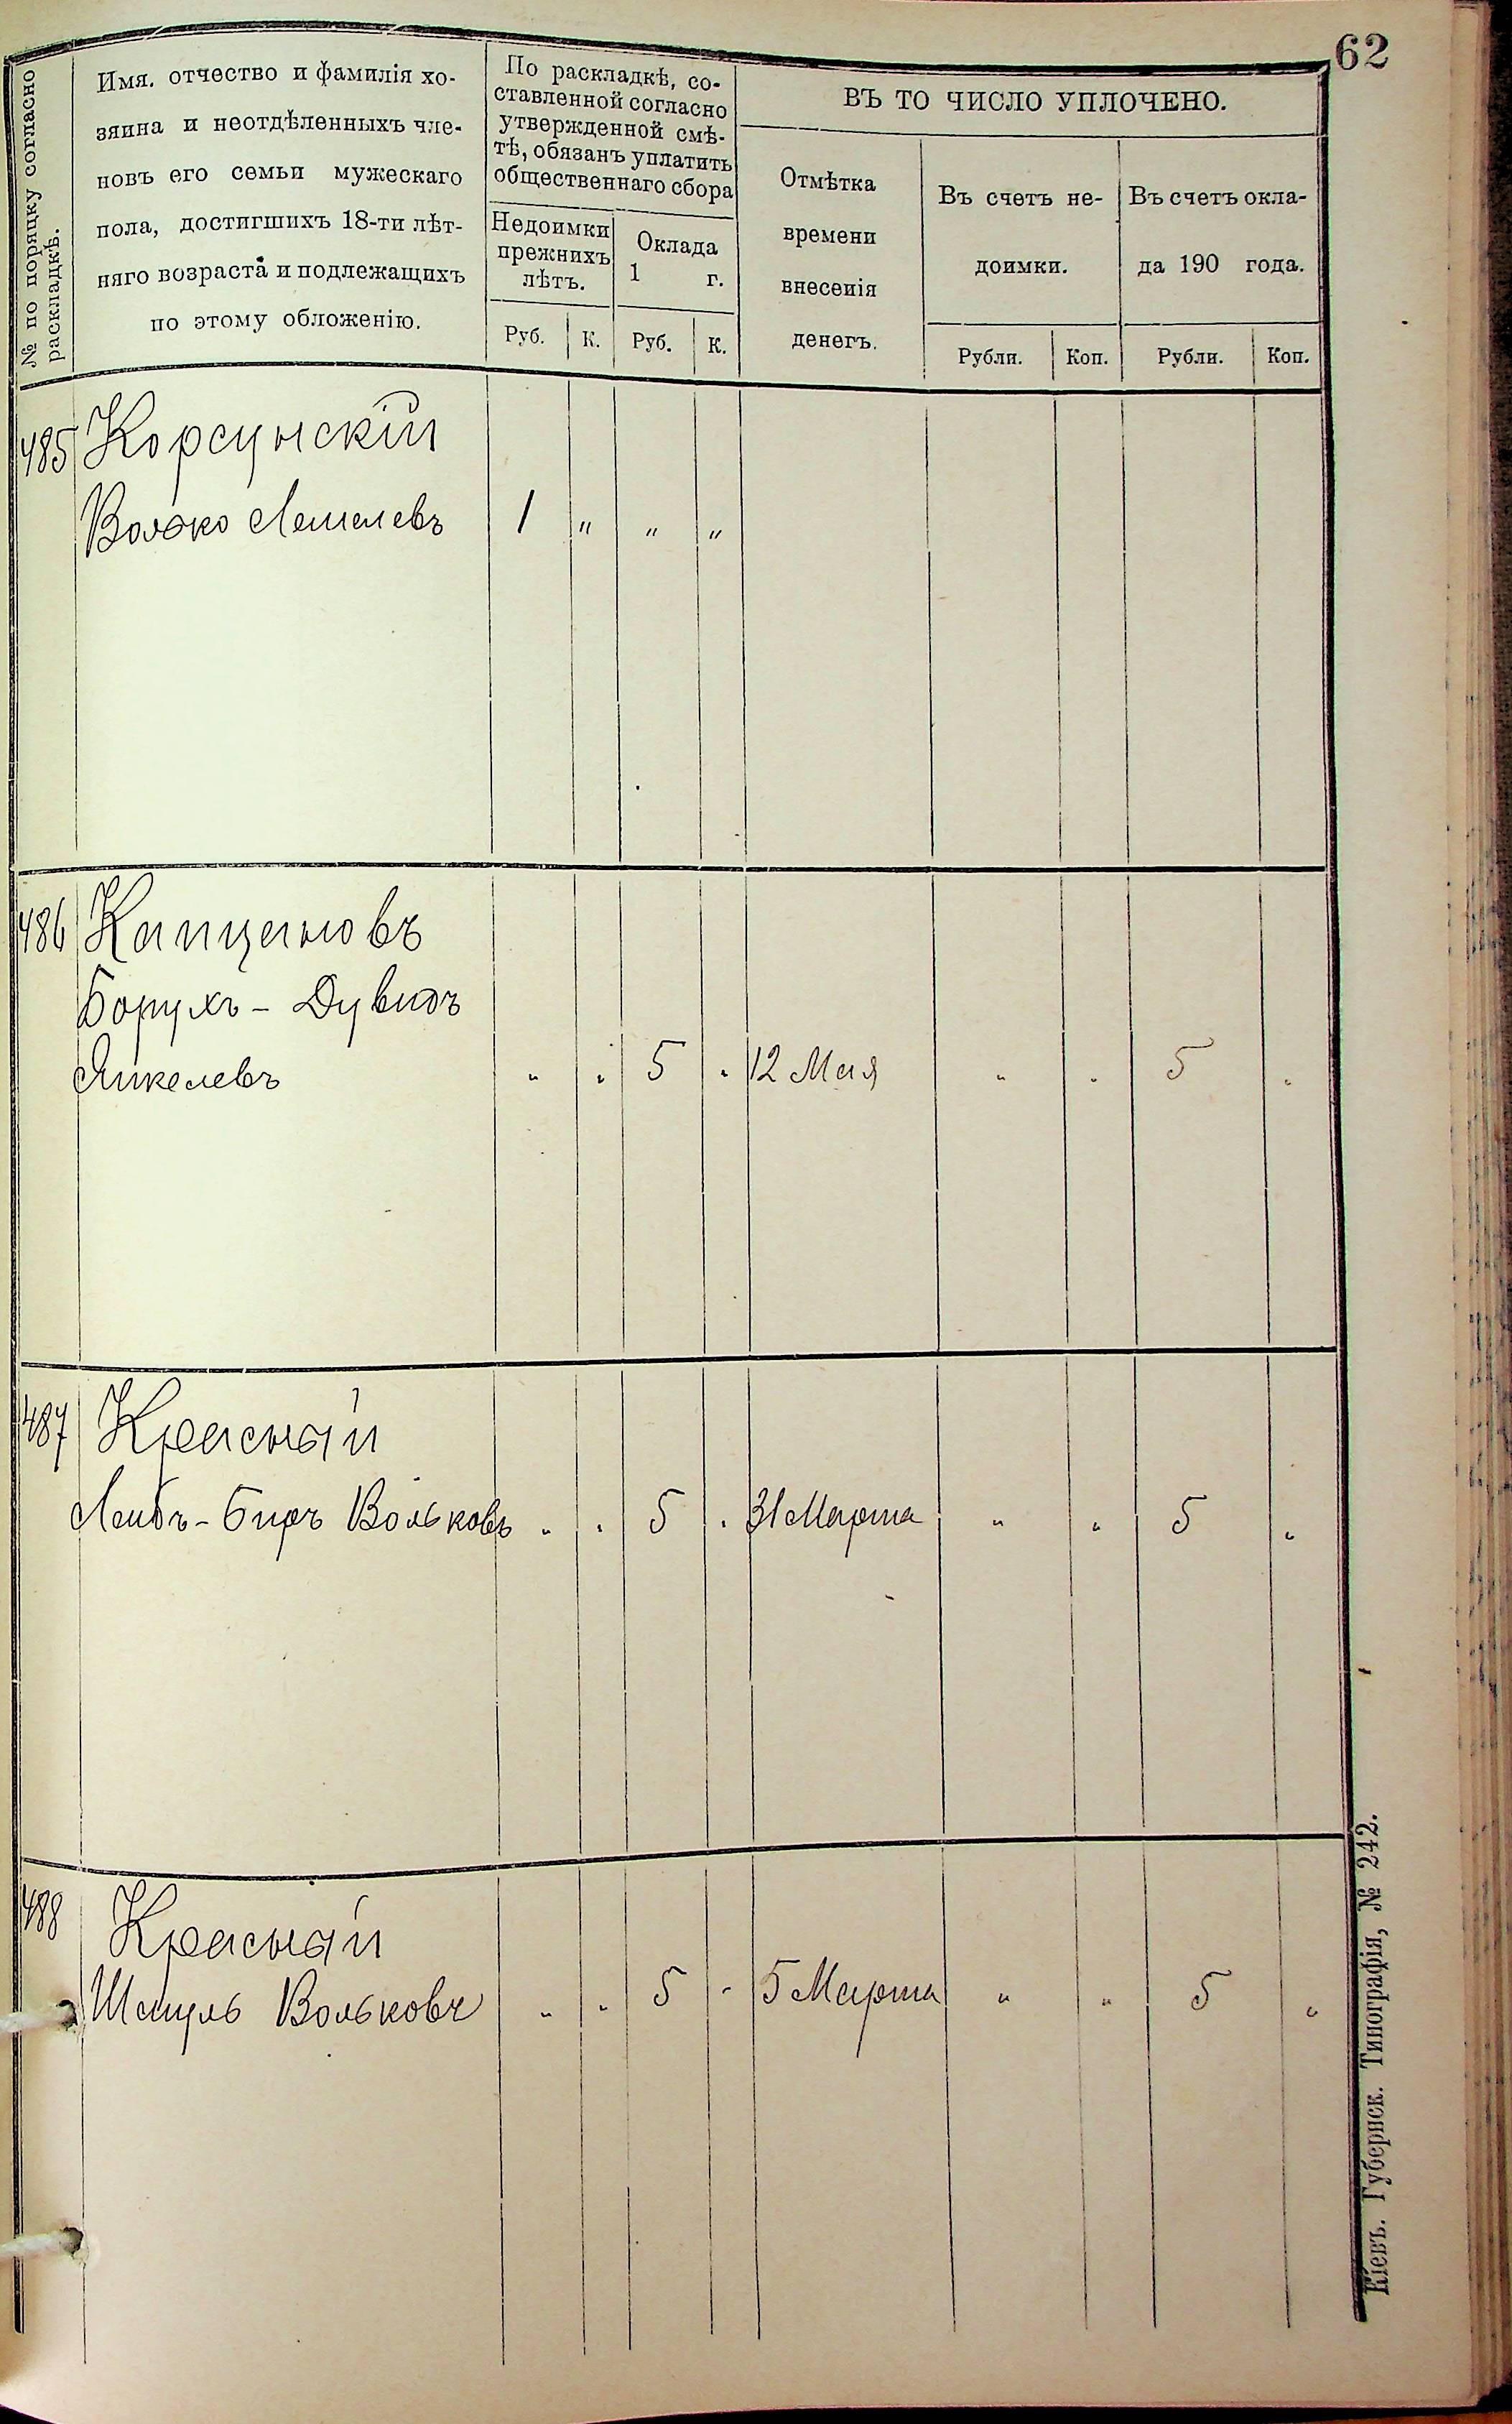 62
№ по порядку согласно
раскладкѣ.
Имя, отчество и фамилія хо-
зяина и неотдѣленныхъ чле-
новъ его семьи мужескаго
пола, достигшихъ 18-ти лѣт-
няго возраста и подлежащихъ
по этому обложенію.
По раскладкѣ, со-
ставленной согласно
утвержденной смѣ-
тѣ, обязанъ уплатить
общественнаго сбора
Недоимки
прежнихъ
лѣтъ.
Оклада
1 г.
Руб. К. Руб. К.
ВЪ ТО ЧИСЛО УПЛОЧЕНО.
Отмѣтка
времени
внесенія
денегъ.
Въ счетъ не-
доимки.
Въ счетъ окла-
да 190 года.
Рубли. Коп. Рубли. Коп.
485 Корсунскій
Волько 1 „ „ „
486 Капцановъ
Борухъ - Дувидъ
Янкелевъ „ „ 5 „ 12 Мая „ „ 5 „
487 Красный
Лейбъ - Беръ Вольковъ „ „ 5 „ 31 Марта „ „ 5 „
488 Красный
Шмуль Вольковъ „ „ 5 „ 5 Марта „ „ 5 „
Кіевъ. Губернск. Типографія, № 242.